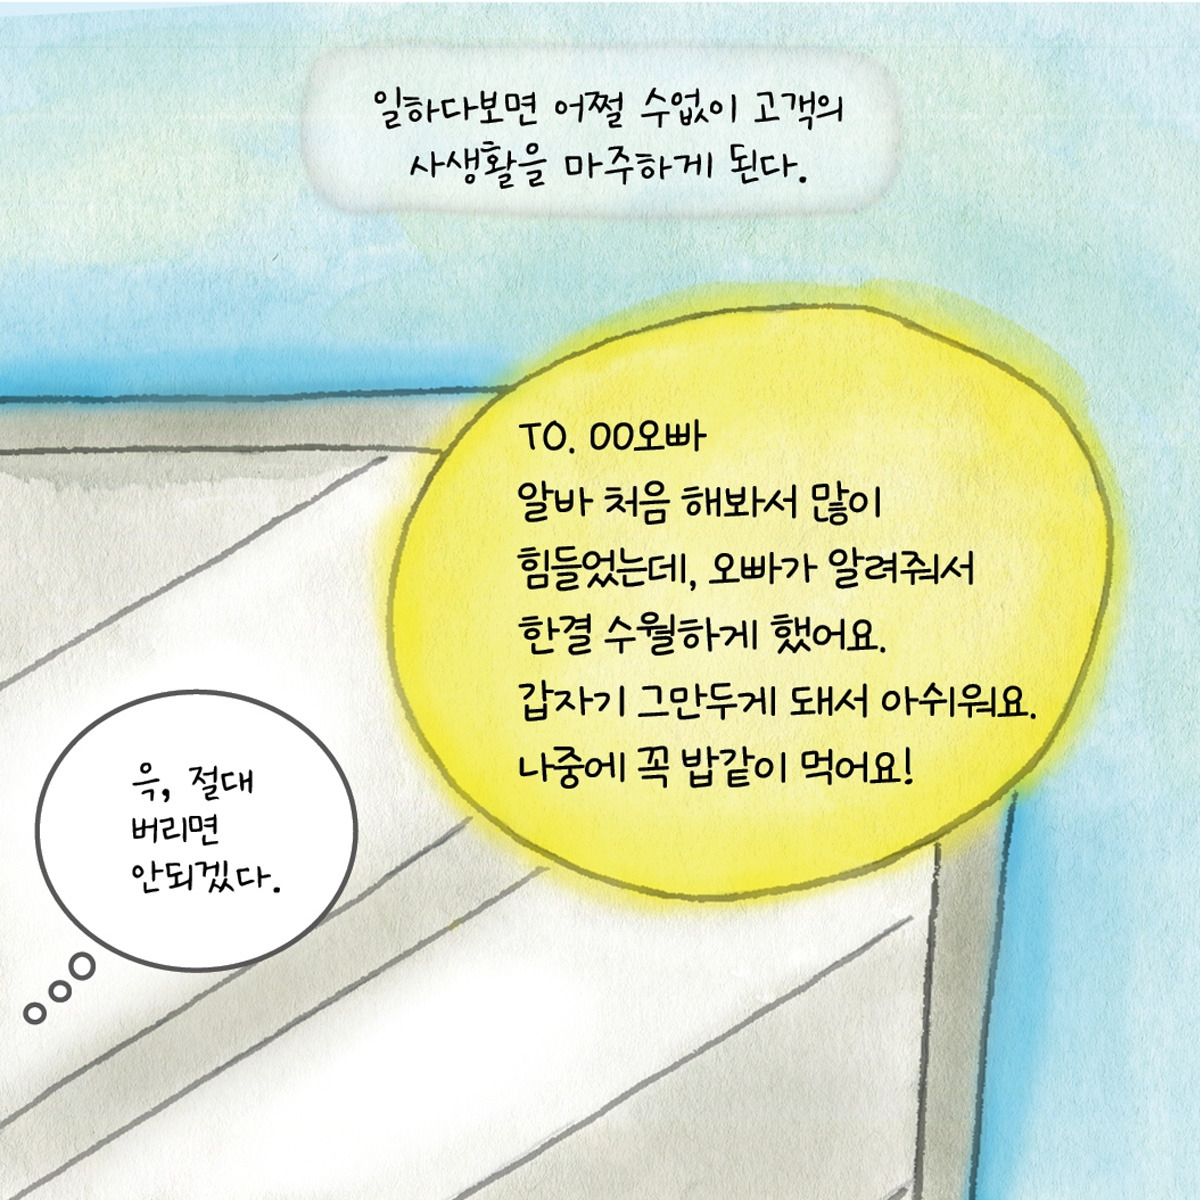 일하다보면 어쩔 수없이 고객의
사생활을 마주하게 된다.
TO. 00오빠
알바 처음 해봐서 많이
힘들었는데, 오빠가 알려줘서
한결 수월하게 했어요.
갑자기 그만두게 돼서 아쉬워요.
나중에 꼭 밥같이 먹어요!
윽, 절대
버리면
안되겠다.